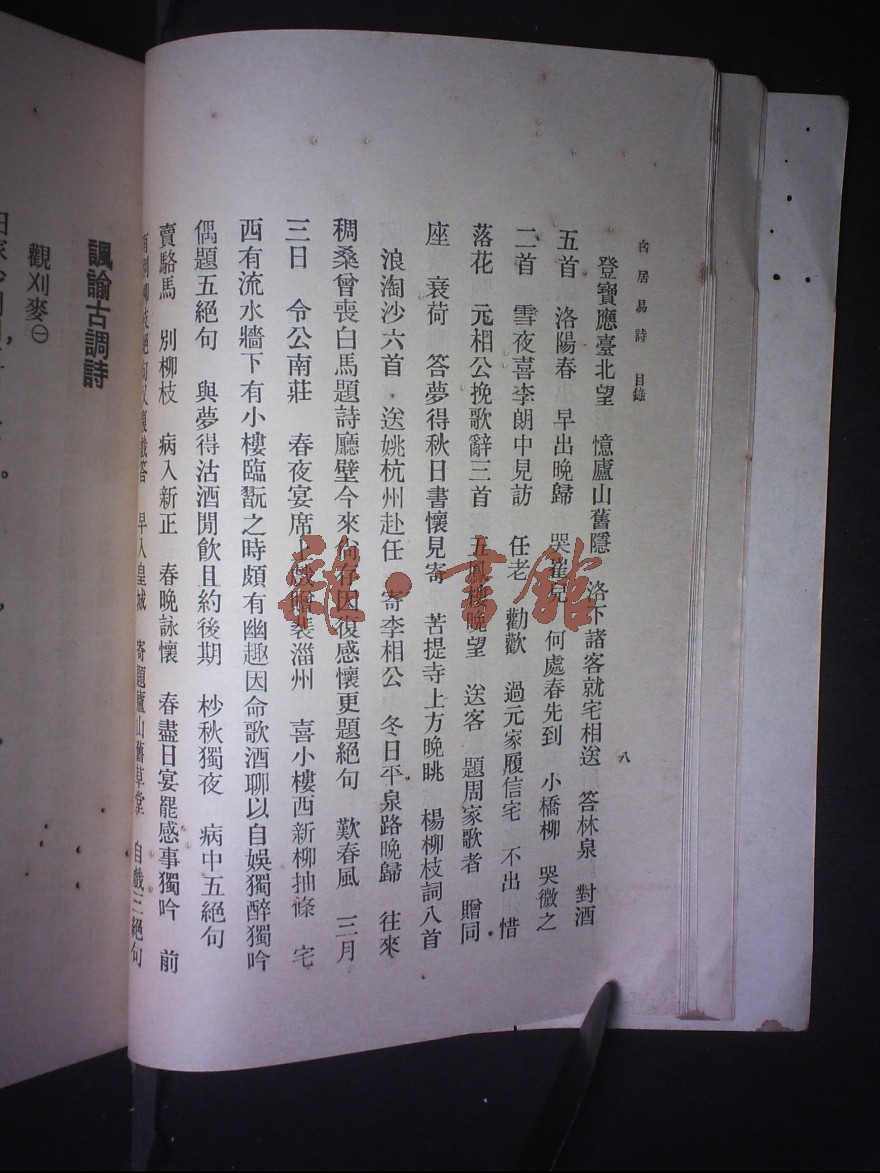 白居易詩 目錄
八
登寶應臺北望 憶廬山舊隱 洛下諸客就宅相送 答林泉 對酒
五首 洛陽春 早出晚歸 哭崔兒 何處春先到 小橋柳 哭微之
二首 雪夜喜李朗中見訪 任老 勸歡 過元家履信宅 不出 惜
落花 元相公挽歌辭三首 五鳳樓晚望 送客 題周家歌者 贈同
座 衰荷 答夢得秋日書懷見寄 苦提寺上方晚眺 楊柳枝詞八首
浪淘沙六首 送姚杭州赴任 寄李相公 冬日平泉路晚歸 往來
稠桑曾喪白馬題詩廳壁今來尚存因復感懷更題絕句 歎春風 三月
三日 令公南莊 春夜宴席上戲贈裴淄州 喜小樓西新柳抽條 宅
西有流水牆下有小樓臨翫之時頗有幽趣因命歌酒聊以自娛獨醉獨吟
偶題五絕句 與夢得沽酒閒飲且約後期 杪秋獨夜 病中五絕句
賣駱馬 別柳枝 病入新正 春晚詠懷 春盡日宴罷感事獨吟 前
早入皇城 寄題廬山舊草堂 自戲三絕句
諷諭古調詩
觀刈麥㊀
雜·書館